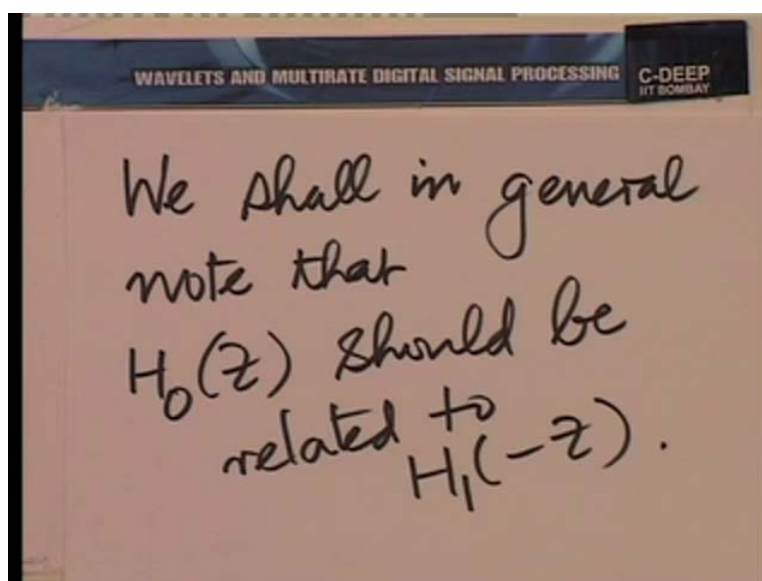 WAVELETS AND MULTIRATE DIGITAL SIGNAL PROCESSING
C-DEEP
IIT BOMBAY
We shall in general
note that
H₀(Z) should be
related to
H₁(-Z).